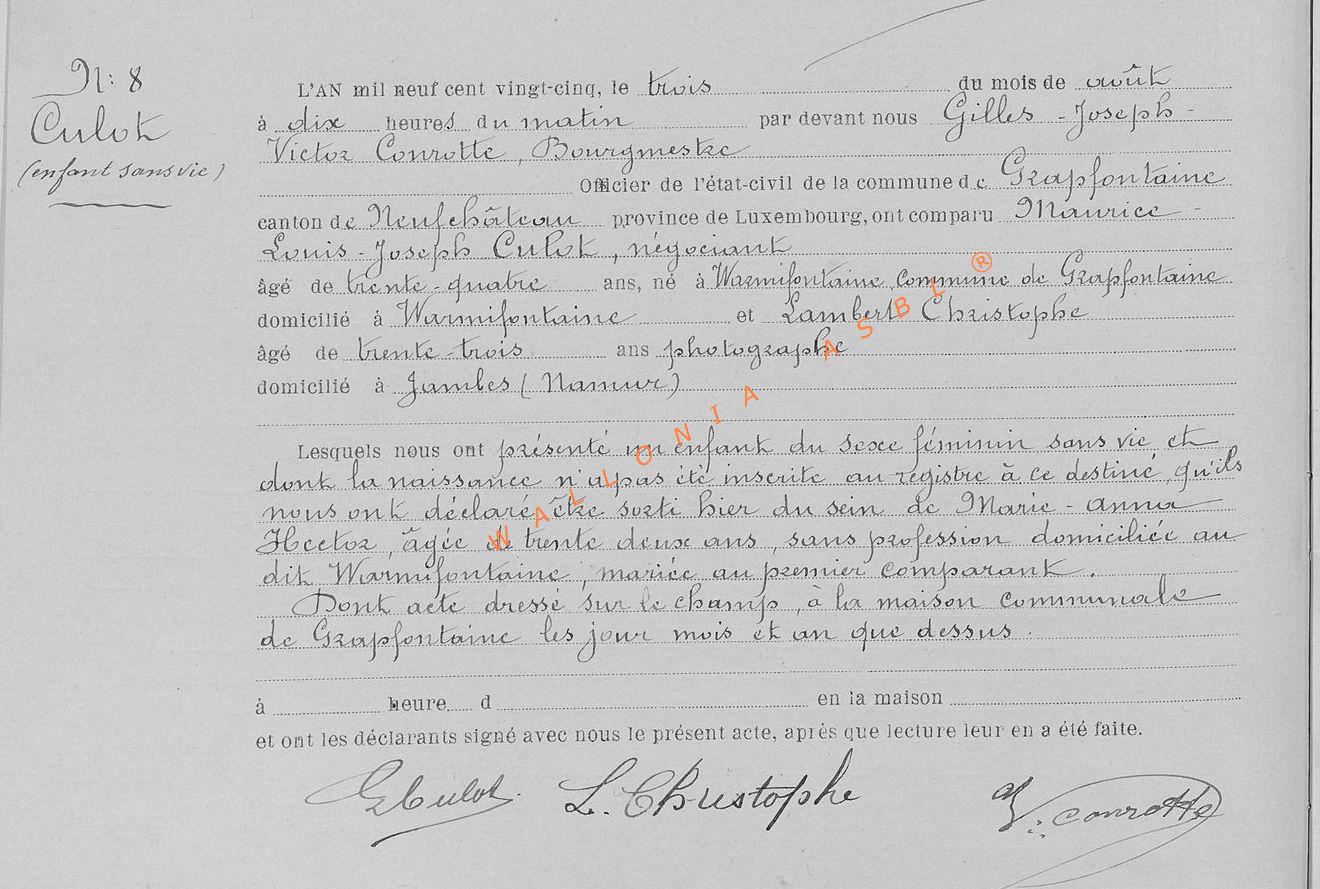 N: 8
Culot
(enfant sans vie)
L'AN mil neuf cent vingt-cinq, le trois du mois de août
à dix heures du matin par devant nous Gilles - Joseph -
Victor Conrotte, Bourgmestre
Officier de l'état-civil de la commune de Grapfontaine
canton de Neufchâteau province de Luxembourg, ont comparu Maurice -
Louis - Joseph Culot, négociant
âgé de trente-quatre ans, né à Warmifontaine commune de Grapfontaine
domicilié à Warmifontaine et Lambert Christophe
âgé de trente-trois ans photographe
domicilié à Jambes (Namur)
Lesquels nous ont présenté un enfant du sexe féminin sans vie et
dont la naissance n'a pas été inscrite au registre à ce destiné, qu'ils
nous ont déclaré être sorti hier du sein de Marie - Anna
Hector, âgée de trente deux ans, sans profession domiciliée au
dit Warmifontaine, mariée au premier comparant.
Dont acte dressé sur le champ, à la maison communale
de Grapfontaine les jour mois et an que dessus.
à heure d en la maison
et ont les déclarants signé avec nous le présent acte, après que lecture leur en a été faite.
Culot. L. Christophe Conrotte
WALLONIA ASBL ®